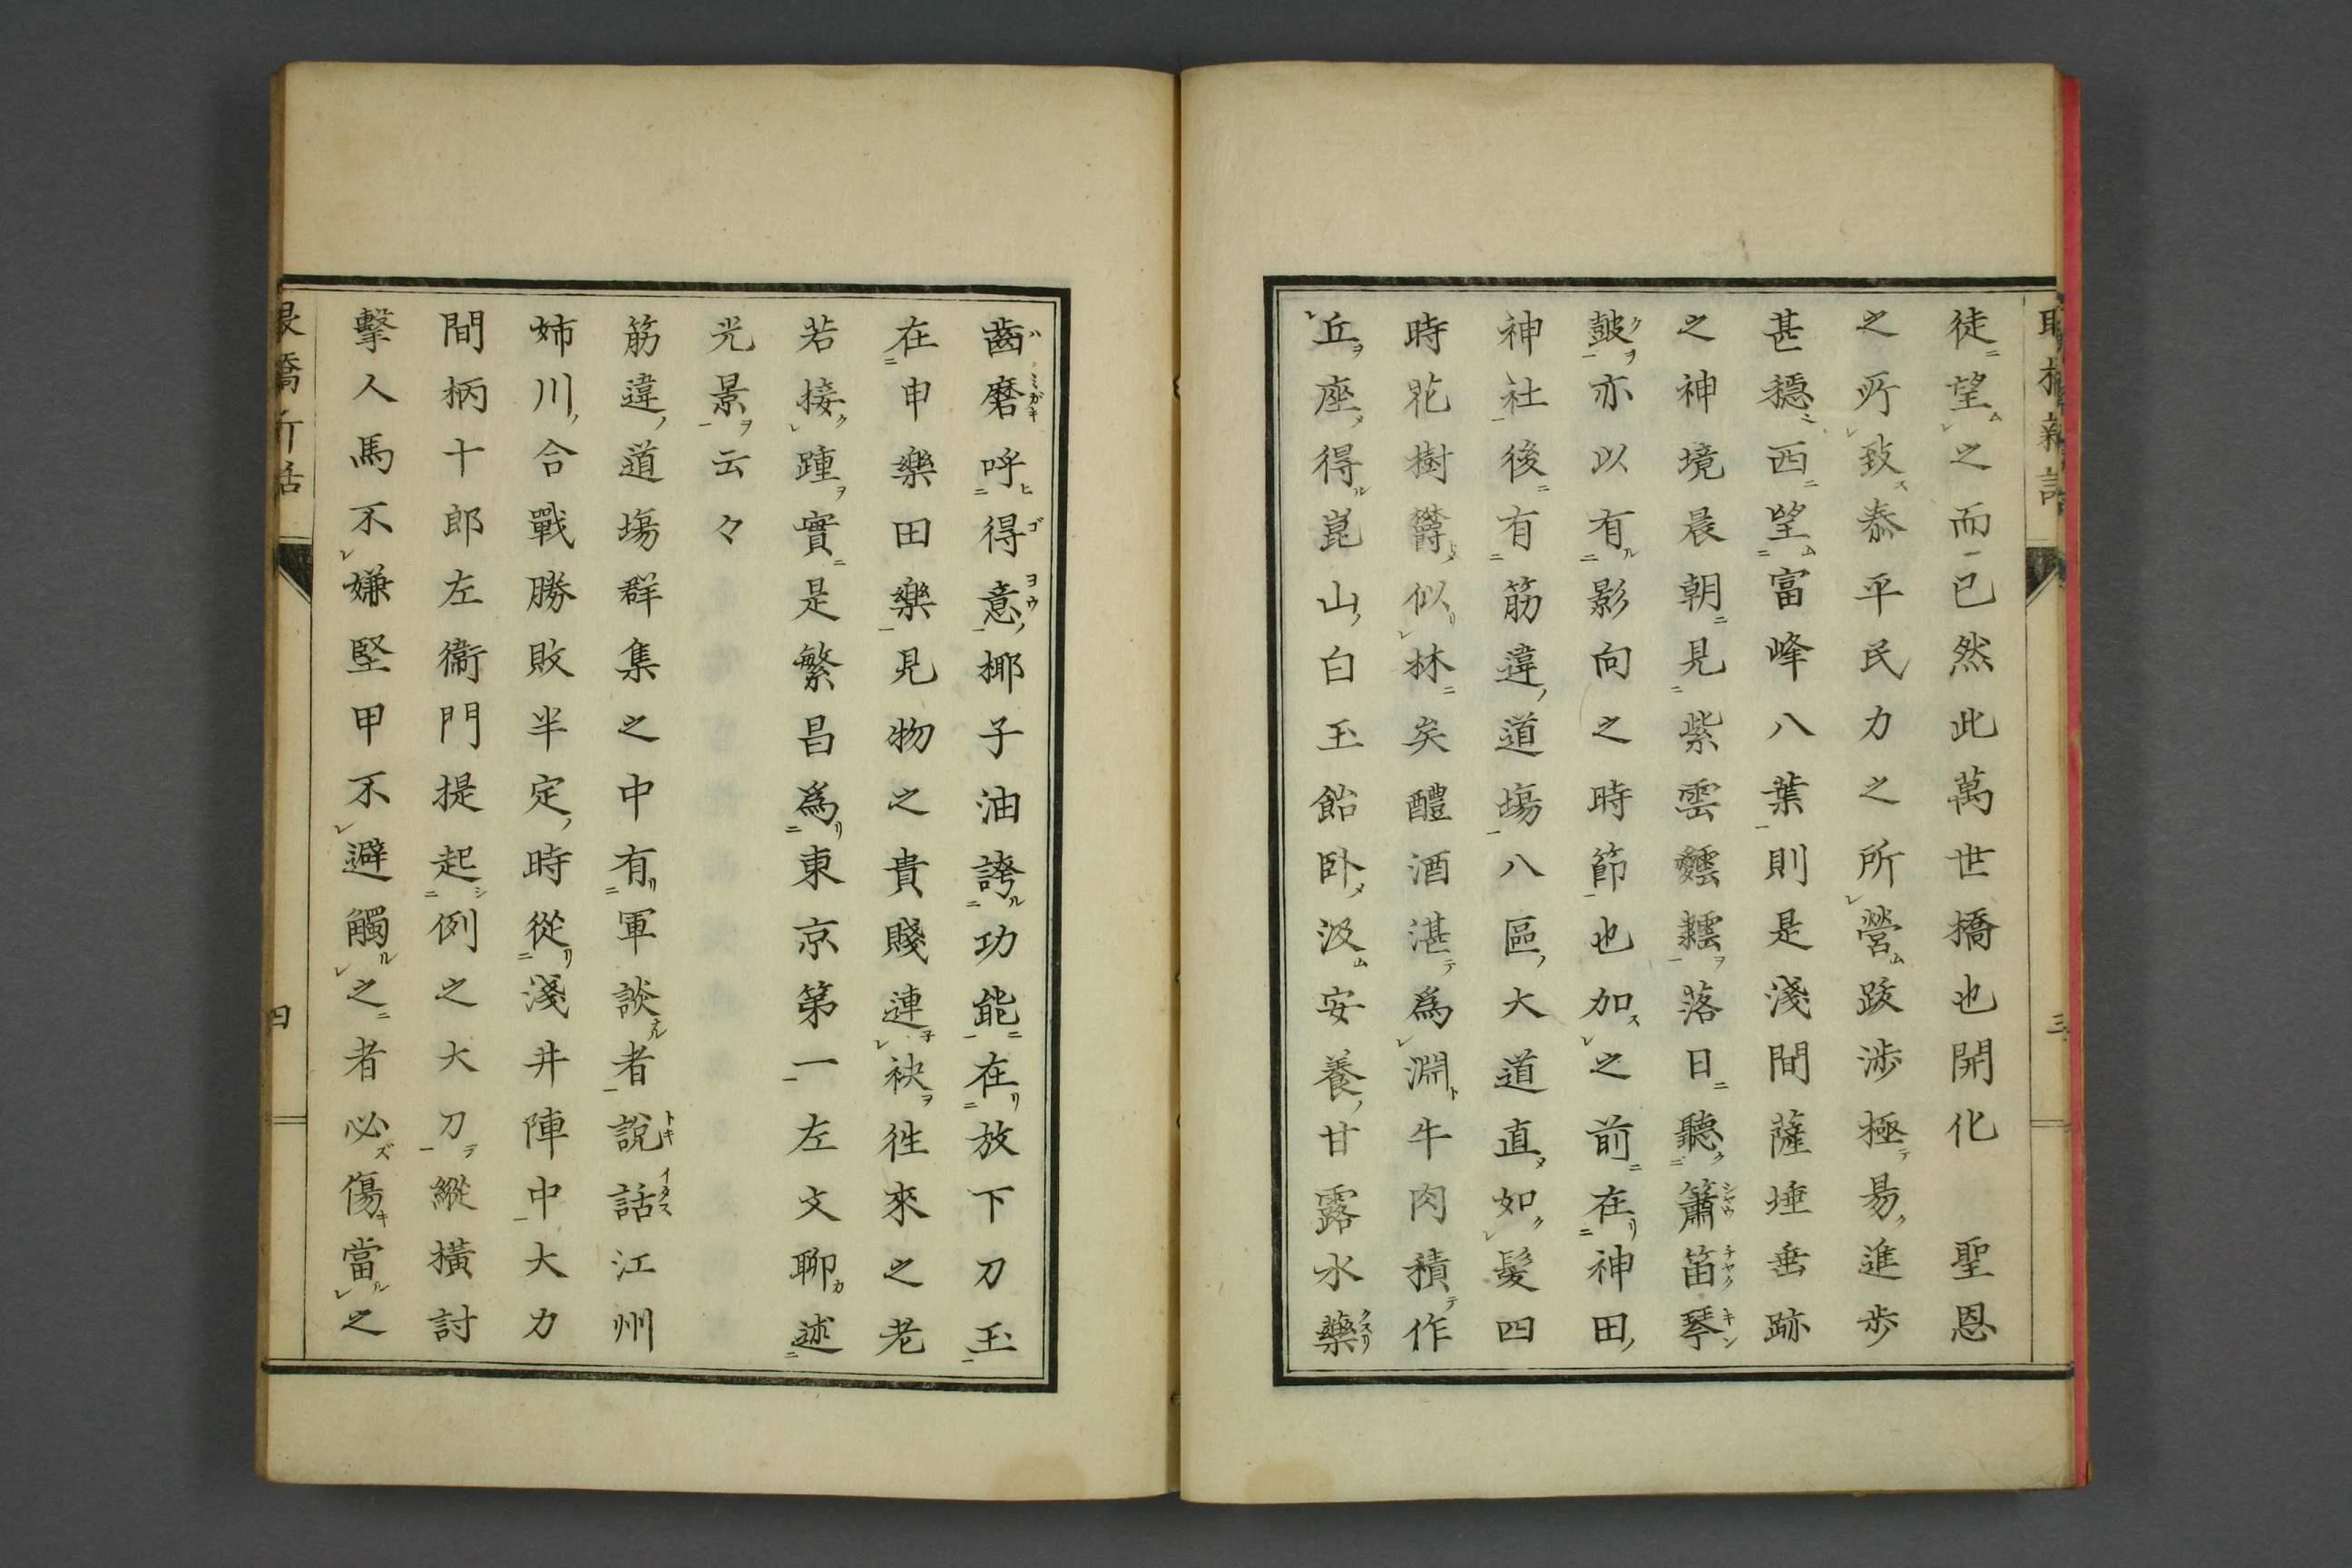 徒望之而已然此萬世橋也開化　聖恩
之所致泰平民力之所營跋涉極易進步
甚穩西望富峰八葉則是淺間薩埵垂跡
之神境晨朝見紫雲靉靆落日聽簫笛琴
皷亦以有影向之時節也加之前在神田
神社後有筋違道塲八區大道直如髮四
時花樹欝似林矣醴酒湛爲淵牛肉積作
丘座得崑山白玉飴卧汲安養甘露水藥
三
齒磨呼得意椰子油誇功能在放下刀玉
在申樂田樂見物之貴賤連袂徃來之老
若接踵實是繁昌爲東京第一左文聊述
光景云々
筋違道塲群集之中有軍談者説話江州
姉川合戰勝敗半定時從淺井陣中大力
間柄十郎左衞門提起例之大刀縱橫討
擊人馬不嫌堅甲不避觸之者必傷當之
四